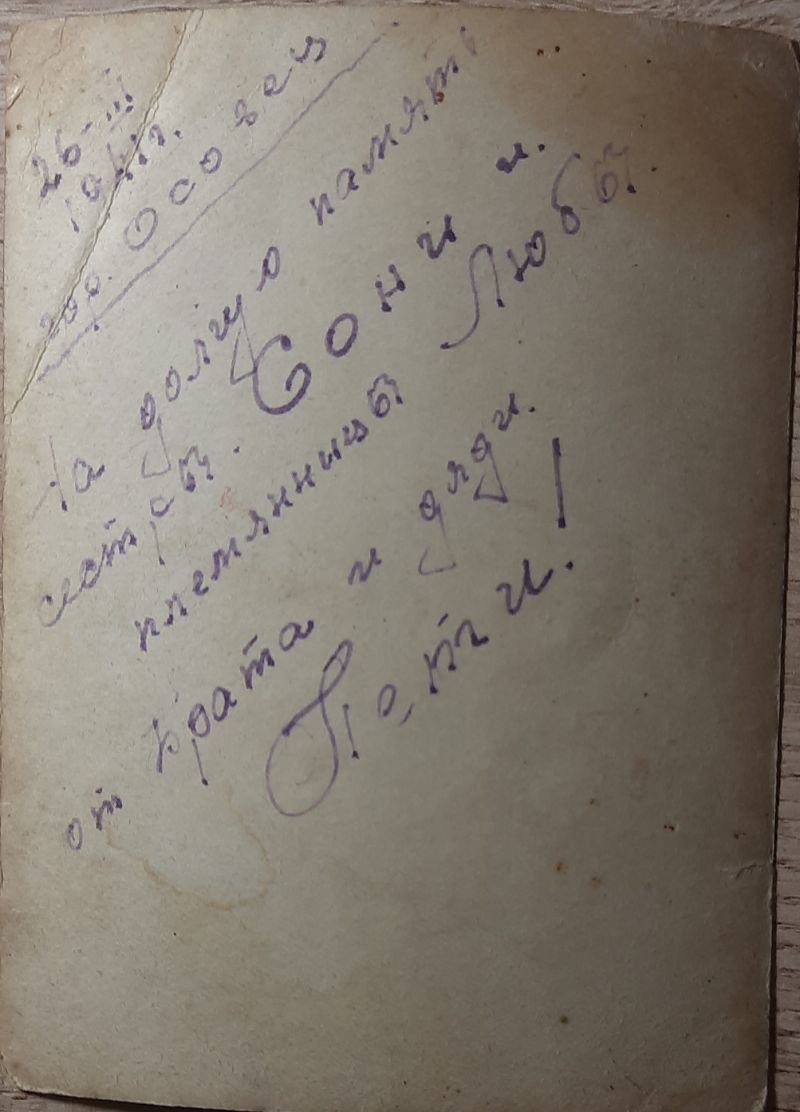 26-III
гор. Осовец
На долгую память
сестры. Сони и.
племянницы Любы.
от брата и дяди.
Пети!